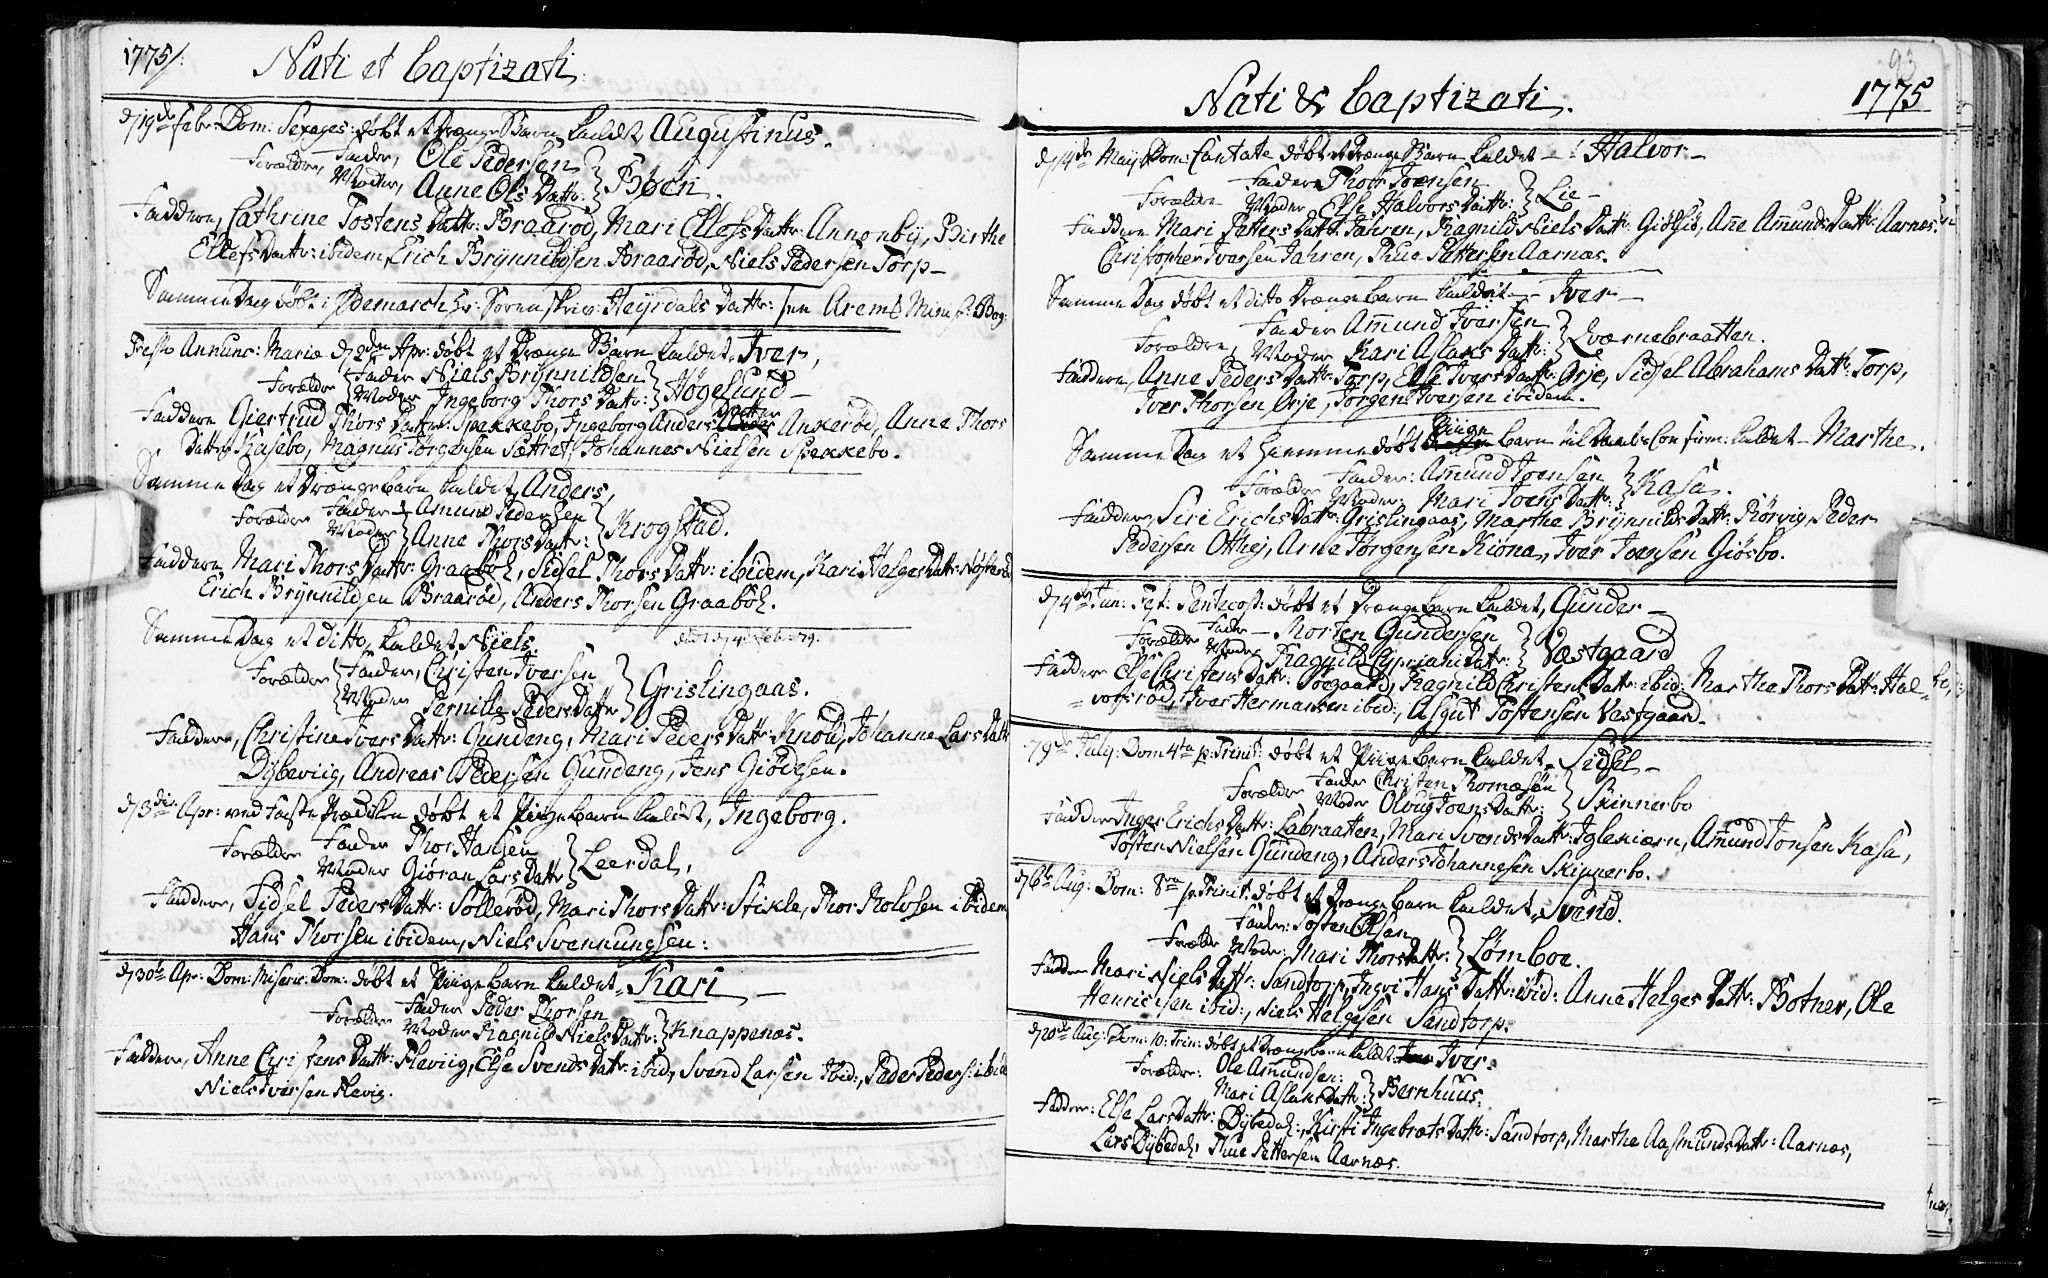 1775/:
Nati et Captizati:
d/19de Febr: Dom: Sexages: døbt et Drænge Barn kaldet Augustinus.
Forældre, Fader, Ole Pedersen
Moder, Anne Ols Dattr: Bøen.
Faddere, Cathrine Tostens Dattr: Braarød, Mari Ellefs Dattr: Annonby, Birthe
Ellefs Dattr: ibidem, Erich Brynnildsen Braarød, Niels Pedersen Torp_
Samme Dag døbt i Ødemarch Hr: Sorenskriv: Heyrdals Dattr: see Arem Minist: Bog.
Festo Annunc: Mariæ d/2den Apr: døbt et Drænge Barn kaldet, Iver,
Forældre Fader Niels Brynnildsen
Moder Ingeborg Thors Dattr: Høgelund_
Faddere Giertrud Thors Dattr: Spekkebo, Ingeborg Anders Datter Ankerød, Anne Thors
Dattr: Kasebo, Magnus Jørgensen Sættret, Johannes Nielsen Spekkebo.
Samme Dag et Drænge barn kaldet, Anders,
Forældre Fader Amund Pedersen
Moder Anne Thors Dattr: Krogstad.
Faddere Mari Thors Dattr: Graabol, Sidsel Thors Dattr: ibidem, Kari Helges Dattr:
Erich Brynnildsen Braarød, Anders Thorsen Graabol.
Samme Dag et ditto, kaldet, Niels. død d/4 Feb: 79.
Forældre Fader, Christen Iversen
Moder Pernille Peders Dattr Grislingaas.
Faddere, Christine Ivers Dattr: Gundeng, Mari Peders Dattr Knoll, Johanne Lars Dattr
Dybeviig, Andreas Pedersen Gundeng, Jens Giødesen.
d/3die Apr: ved Faste Prædiken døbt et Piige barn kaldet, Ingeborg.
Forældre Fader Thor Hansen
Moder Gioran Lars Dattr Leerdal,
Faddere, Sidsel Peders Dattr: Sollerød, Mari Thors Dattr: Stikle, Thor Rolvsen ibidem
Hans Thorsen ibidem, Niels Svennungsen:
d/30te Apr: Dom: Miseric: Dom: døbt et Piige barn kaldet, Kari_
Forældre Fader Peder Thorsen
Moder Ragnild Niels Dattr: Knappenæs.
Faddere, Anne Christens Dattr: Flaviig, Else Svends Dattr: ibid, Svend Larsen Ibid:, Peder Peders: ibid
Niels Iversen Flevig.
93
Nati & Captizati.
1775
d/14de Maij Dom: Cantate døbt et Drænge Barn kaldet_: Halvor_
Forældre Fader Thor Joensen
Moder Else Halvors Dattr: Lie_
Faddere Mari Petters Dattr. Jahren, Ragnild Niels Dattr: Giølsiø, Ane Amunds Dattr: Aarnæs.
Christopher Iversen Jahren, Thue Pettersen Aarnæs.
Samme Dag døbt et ditto Drænge barn kaldet_ Iver_
Forældre, Fader Amund Iversen
Moder Kari Aslaks Dattr: Qværnebraatten.
Faddere, Anne Peders Dattr: Torp, Else Ivers Dattr: Ørje, Sidsel Abrahams Dattr: Torp,
Iver Thorsen Ørje, Jørgen Iversen ibidem.
Samme Dag et Hiemmedøbt Piige barn til Daabs Confirm: kaldet_ Marthe.
Forældre Fader: Amund Joensen
Moder: Mari Joens Dattr: Kasa.
Faddere, Siri Erichs Dattr: Grislingaas, Marthe Brynnilds Dattr: Rørvig, Peder
Pedersen Otthej, Arne Jørgensen Kiøna, Iver Joensen Giøsbo.
d/4de Jun: Fest: Pentecost: døbt et Drænge barn kaldet, Gunder_
Forældre Fader_ Morten Gundersen
Moder Ragnild Cyprians Dattr: Væstgaard
Faddere Else Christens Dattr: Soegaard, Ragnild Christens Dattr: ibid: Marthe Thors Dattr: Hal=
=vorsrød, Iver Hermansen ibid:, Asgut Tostensen Vestgaard.
d/9de July: Dom 4ta p: Trinit: døbt et Piige barn kaldet, Sidsel_
Forældre Fader Christen Thomæsøn
Moder Olaug Joens Dattr: Skinnerbo
Faddere Inger Erichs Dattr: Labraatten, Mari Svends Dattr: Igletiærn, Amund Jonsen Kasa,
Tosten Nielsen Gundeng, Anders Johannesen Skinnerbo.
d/6te Aug: Dom: 8va p: Trinit: døbt et Drænge barn kaldet, Svend.
Forældre Fader: Tosten Olsen
Moder: Mari Thors Dattr: Lømboe.
Faddere Mari Niels Dattr: Sandtorp, Ingri Hans Dattr: ibid: Anne Helges Dattr: Botner, Ole
Henrichsen ibid:, Niels Helgesen Sandtorp.
d/20de Aug: Dom: 10: Trin: døbt et Drænge barn kaldet Iver.
Forældre: Ole Amundsen:
Mari Aslaks Dattr: Bernhuus.
Faddere: Else Lars Dattr: Dybedal:, Kirsti Ingebræts Dattr: Sandtorp, Marthe Aasmunds Dattr: Aarnæs,
Lars Dybedal, Thue Pettersen Aarnæs.